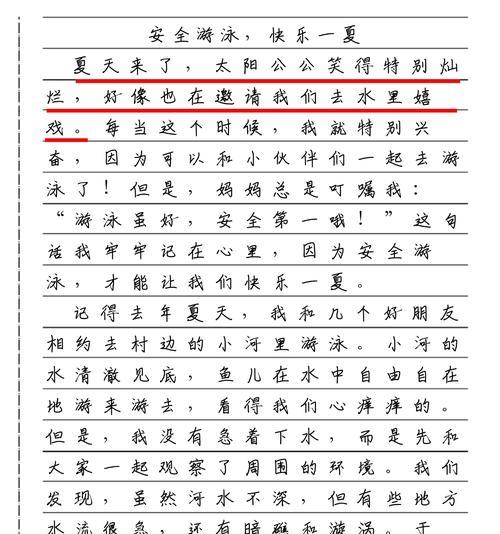 安全游泳，快乐一夏
夏天来了，太阳公公笑得特别灿
烂，好像也在邀请我们去水里嬉
戏。每当这个时候，我就特别兴
奋，因为可以和小伙伴们一起去游
泳了！但是，妈妈总是叮嘱我：
“游泳虽好，安全第一哦！”这句
话我牢牢记在心里，因为安全游
泳，才能让我们快乐一夏。
记得去年夏天，我和几个好朋友
相约去村边的小河里游泳。小河的
水清澈见底，鱼儿在水中自由自在
地游来游去，看得我们心痒痒的。
但是，我没有急着下水，而是先和
大家一起观察了周围的环境。我们
发现，虽然河水不深，但有些地方
水流很急，还有暗礁和漩涡。于